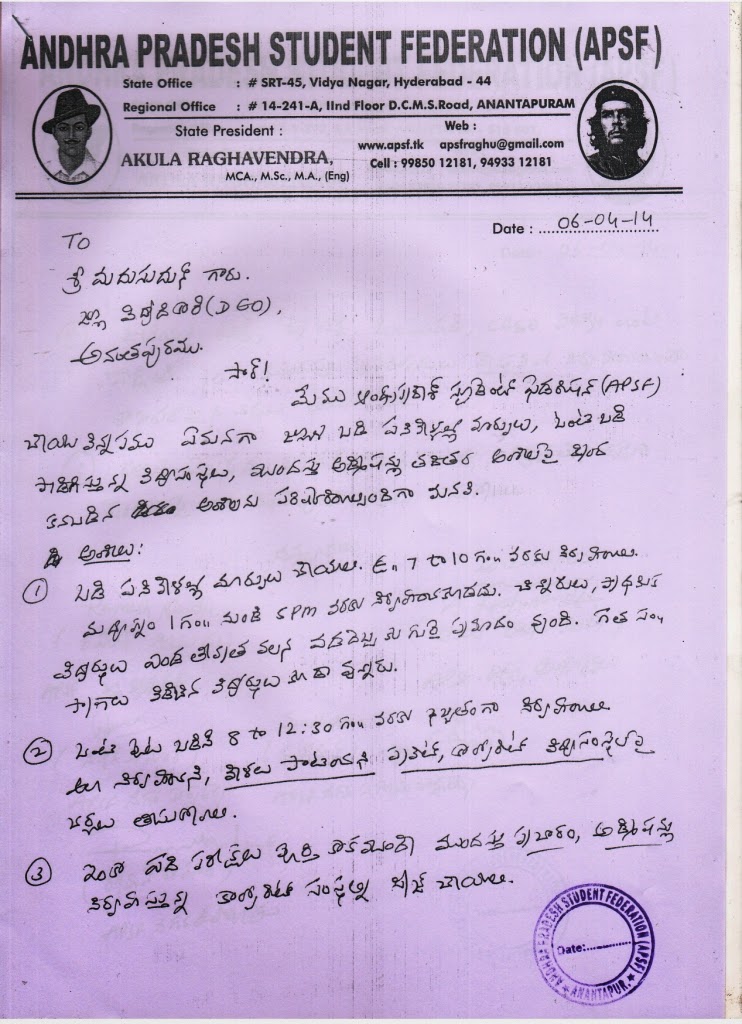 ANDHRA PRADESH STUDENT FEDERATION (APSF)
State Office : # SRT-45, Vidya Nagar, Hyderabad - 44
Regional Office : # 14-241-A, IInd Floor D.C.M.S.Road, ANANTAPURAM
State President :
AKULA RAGHAVENDRA,
MCA., M.Sc., M.A., (Eng)
Web :
www.apsf.tk apsfraghu@gmail.com
Cell : 99850 12181, 94933 12181
Date : 06-04-14
To
శ్రీ మదుసుదున్ గారు.
జిల్లా విద్యాదికారి (DEO),
అనంతపురము.
సార్!
మేము ఆంధ్రప్రదేశ్ స్టూడెంట్ ఫెడరేషన్ (APSF)
చేయు విన్నపము ఏమనగా బడి పనివేళల్లో మార్పులు, ఒంటి బడి
విద్యాసంస్థలు, ముందస్తు అడ్మిషన్లు తదితర అంశాలపై క్రింద
కనబడిన అంశాలను పరిశీలించాల్సిందిగా మనవి.
అంశాలు:
1 బడి పనివేళల్లో మార్పులు చేయాలి. ఉ. 7 to 10 గం॥ వరకు నిర్వహించాలి.
మధ్యాహ్నం 1 గం॥ నుండి 5 PM వరకు నిర్వహించకూడదు. చిన్నారులు, ప్రాథమిక
విద్యార్థులు ఎండ తీవ్రత వలన వడదెబ్బకు గురై ప్రమాదం వుంది. గత సం॥
విద్యార్థులు కూడా వున్నారు.
2 ఒంటి పూట బడిని 8 to 12:30 గం॥ వరకు ఖచ్చితంగా నిర్వహించాలి
అలా నిర్వహించని, వేళలు పాటించని ప్రైవేట్, కార్పొరేట్ విద్యాసంస్థలపై
చర్యలు తీసుకోవాలి.
3 ఇంకా పది పరీక్షలు పూర్తి కాకముందే ముందస్తు ప్రచారం, అడ్మిషన్లు
నిర్వహిస్తున్న కార్పొరేట్ సంస్థల్ని సీజ్ చేయాలి.
ANDHRA PRADESH STUDENT FEDERATION (APSF)
Date:
ANANTAPUR.